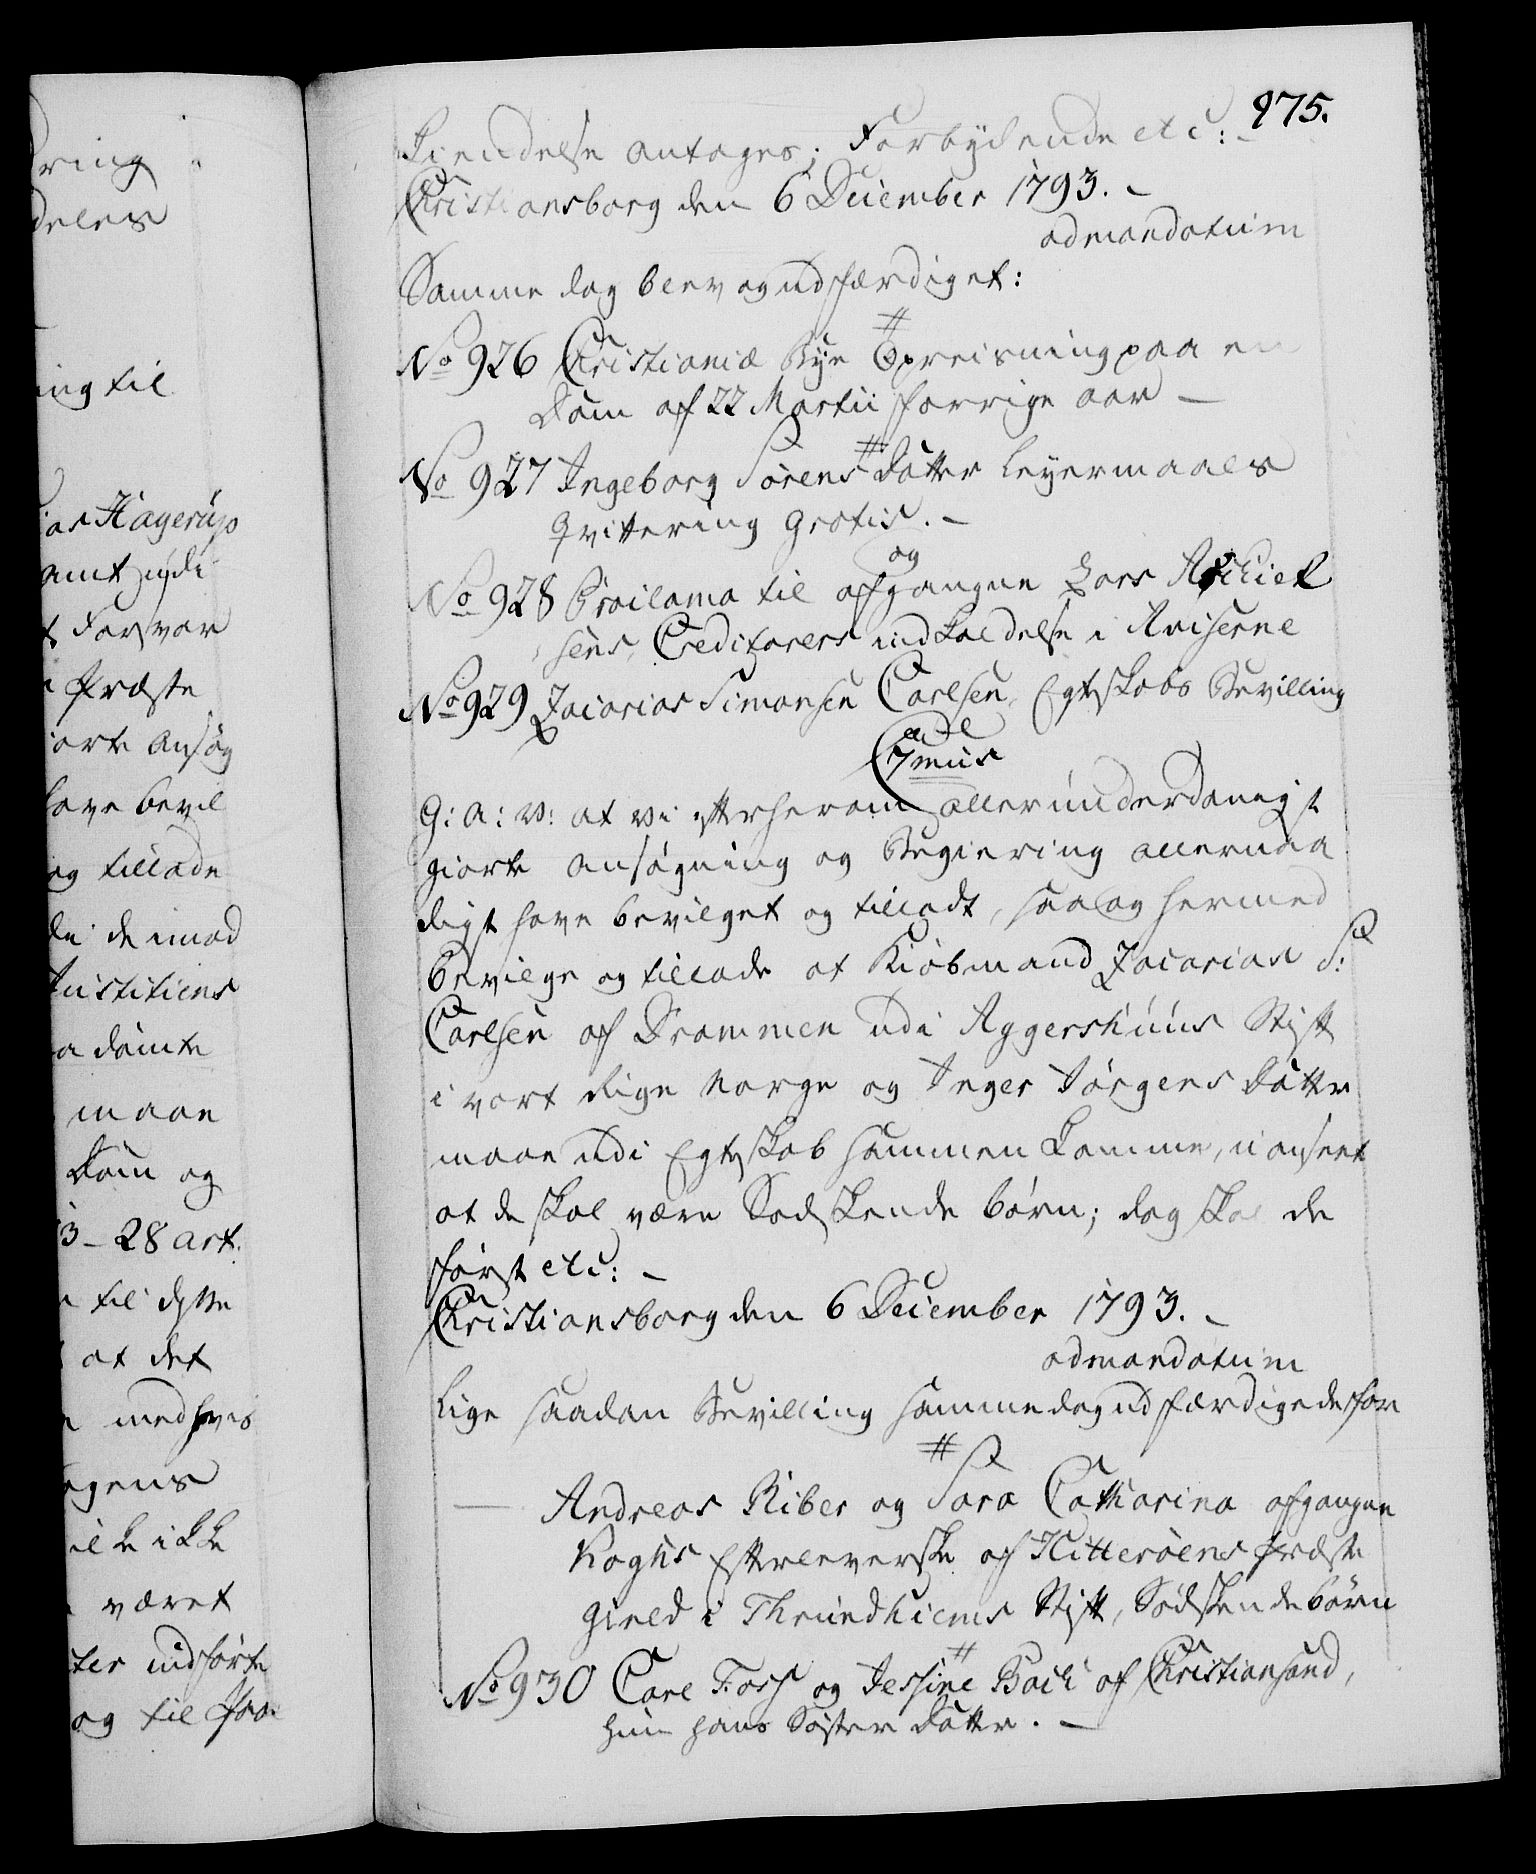 975.
Kiendelse antages; Forbydende etc:
Christiansborg den 6 December 1793.
ad mandatum
Samme dag blev og udfærdiget:
No 926 Christianiæ Bye Opreisning paa en
Dom af 22 Martii forrige aar
No 927 Ingeborg Sørens Datter Leyermaals
Qvittering Gratis.
og
No 928 Proclama til afgangne Lars Michel
sens Creditorers indkaldelse i Aviserne
No 929 Zacarias Simonsen Carlsen Egteskabs Bevilling
C 7mus
G: A: V: at vi efter herom allerunderdanigst
giorte ansøgning og Begiering allernaa
digst have bevilget og tilladt, saa og hermed
bevilge og tillade at Kiøbmand Zacarias S:
Carlsen af Drammen udi Aggershuus Stift
i vort Rige Norge og Inger Jørgens Datter
maae udi Egteskab sammen komme, uanseet
at de skal være Sødskende børn; dog skal de
først etc:
Christiansborg den 6 December 1793.
ad mandatum
Lige saadan Bevilling samme dag udfærdigedes for
Andreas Riber og Sara Catharina afgangne
Koghs Efterleverske af Hitterøens Præste
gield i Thrundhiems Stift, Sødskendebørn
No 930 Carl Foss og Jessine Bach af Christiansand,
hun hans Søster Datter.
ring
deles
ing til
ias Hagerup
amt udi
t Forsvar
Præste
iorte Ansøg
have bevil
og tillade
de derimod
Justitiens
a dømte
maae
Dom og
3 - 28 art.
til dette
at det
med hvis
agens
ikke
været
ter indførte
og til Paa